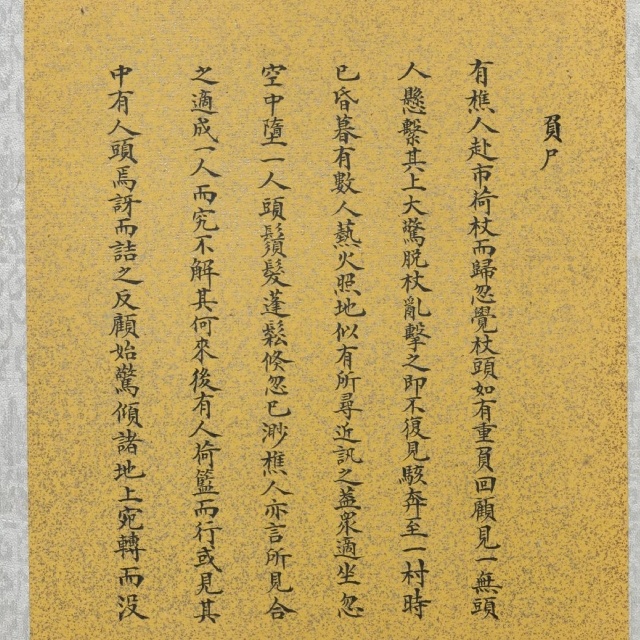 負尸
有樵人赴市荷杖而歸忽覺杖頭如有重負回顧見一無頭
人懸繫其上大驚脫杖亂擊之即不復見駭奔至一村時
已昏暮有數人爇火照地似有所尋近訊之蓋眾適坐忽
空中墮一人頭鬚髮蓬鬆倏忽已渺樵人亦言所見合
之適成一人而究不解其何來後有人荷籃而行或見其
中有人頭焉訝而詰之反顧始驚傾諸地上宛轉而沒